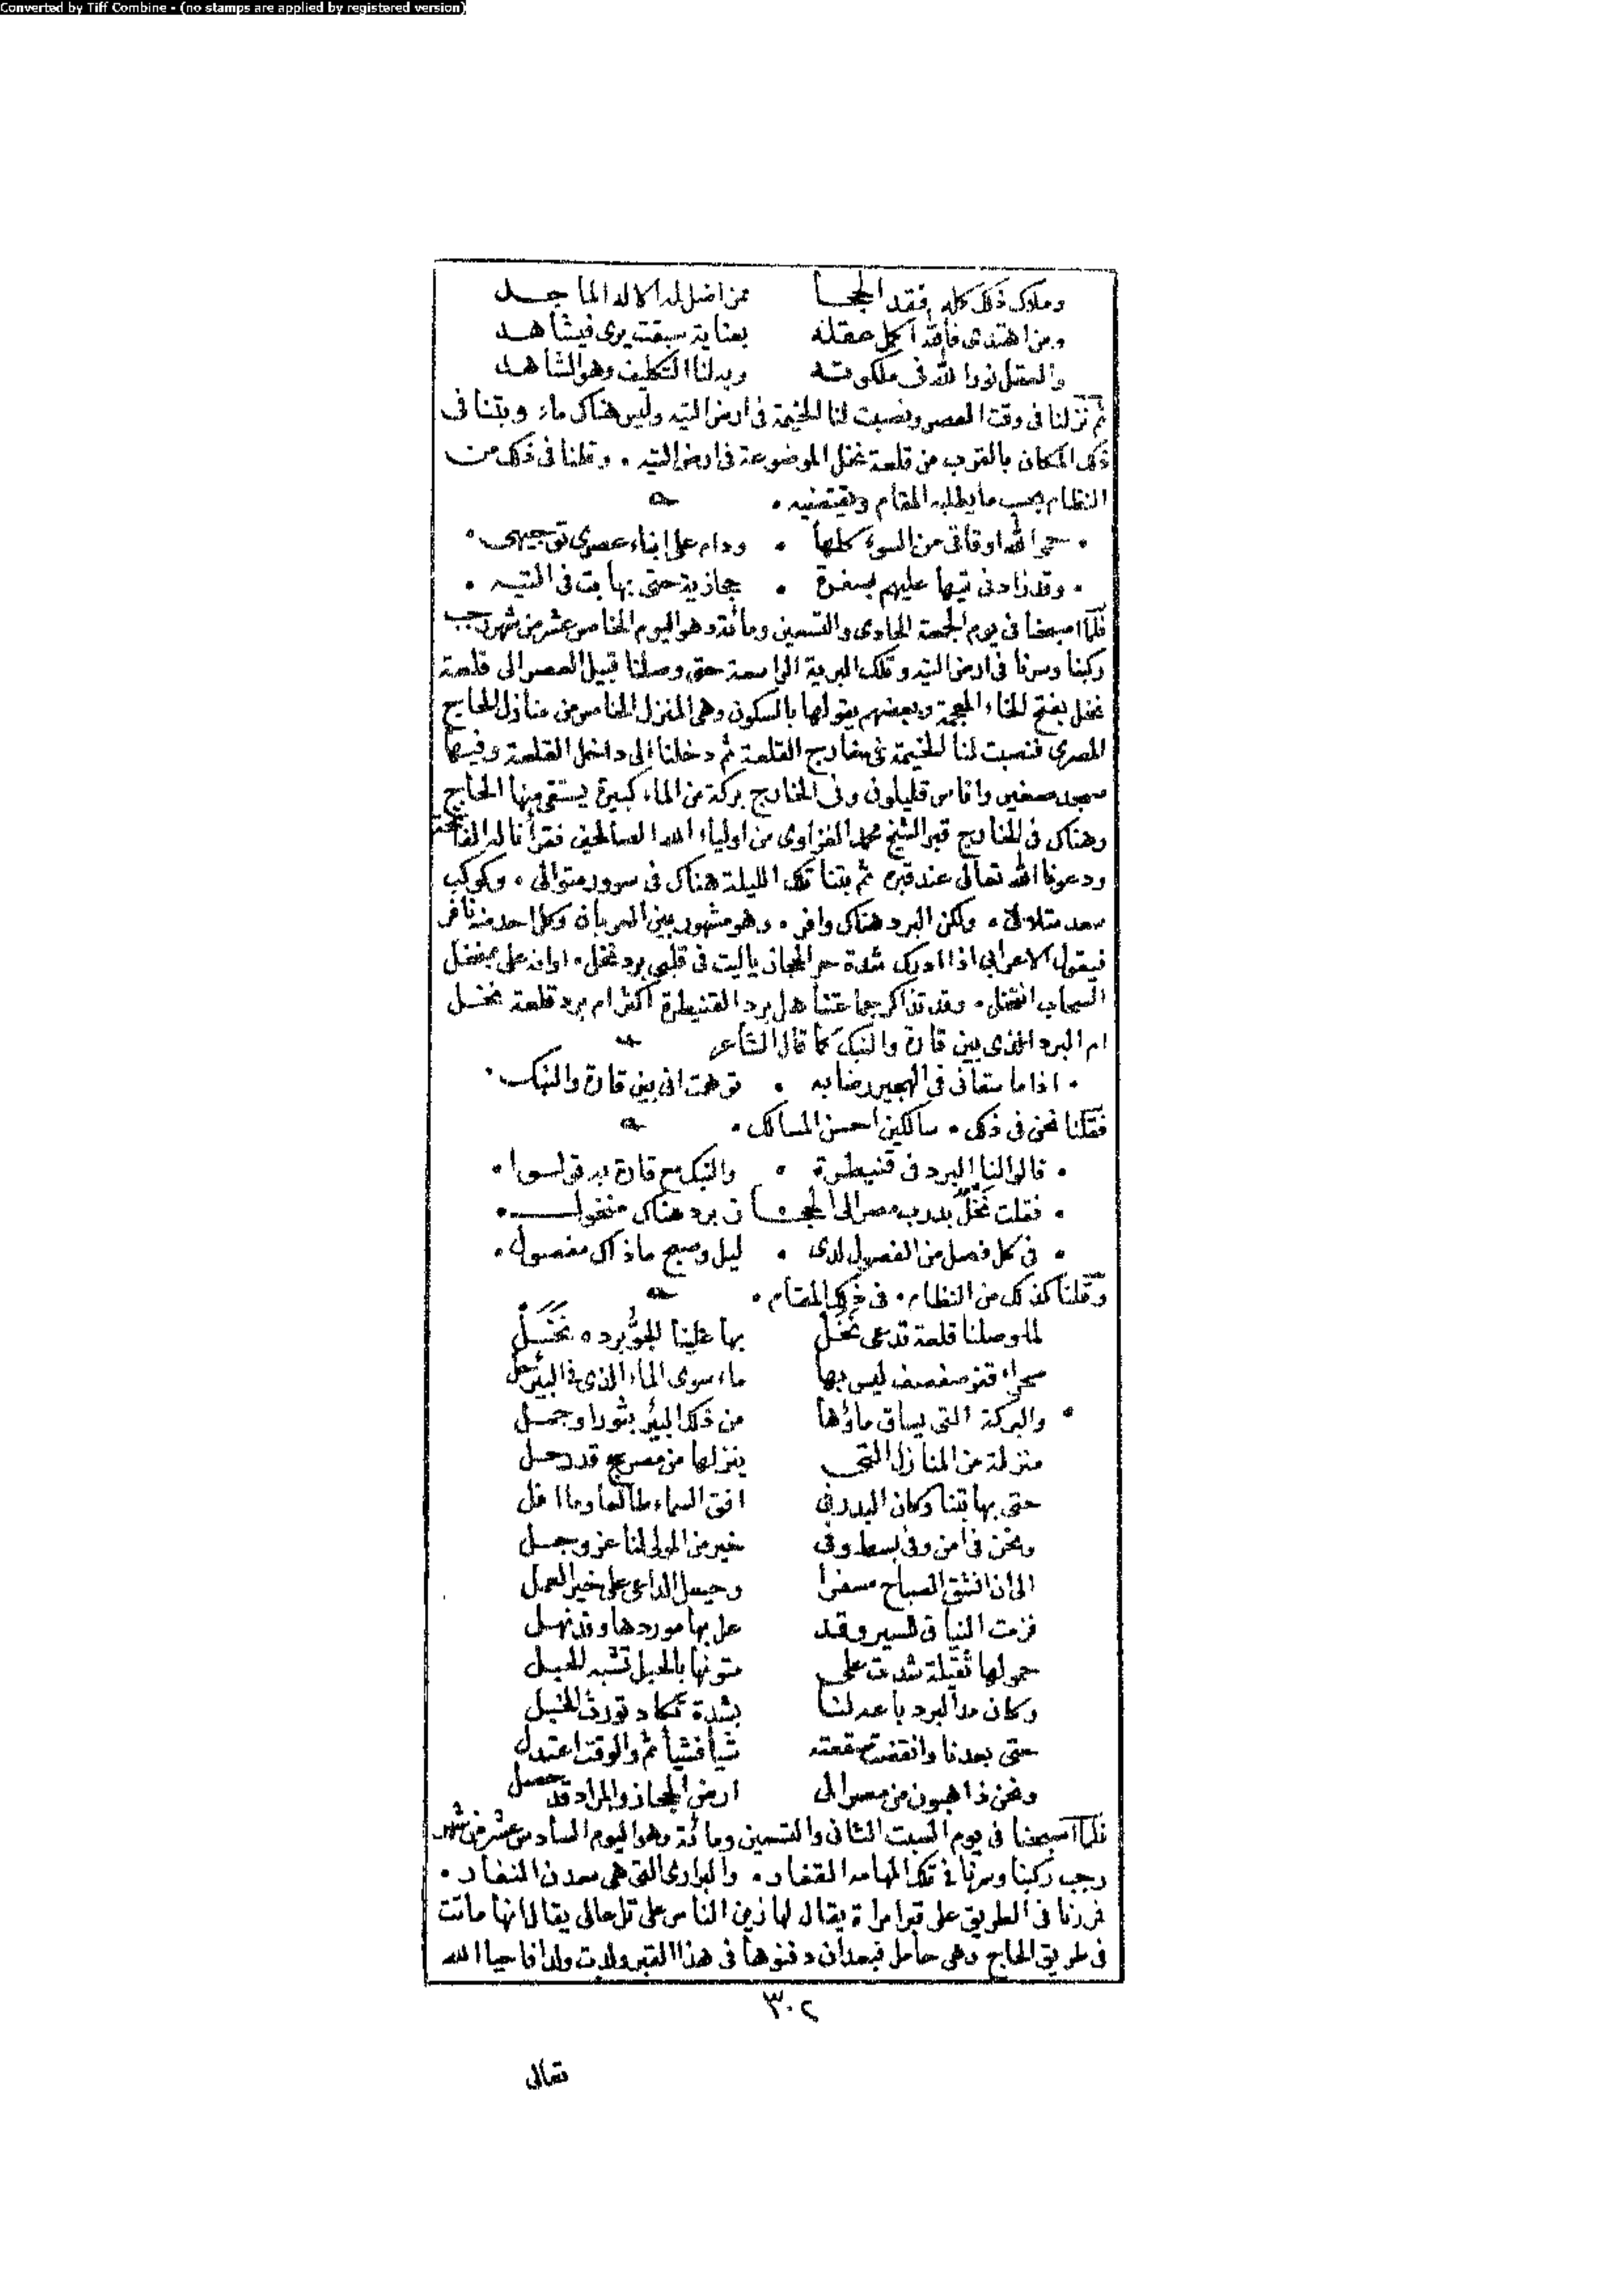 Converted by Tiff Combine - (no stamps are applied by registered version)
وملاك ذلك كله فقد الحجا ممن اضل له الاله الماجد
ومن اهتدى فالله اكمل عقله بعناية سبقت يرى فيشاهد
والعقل نور الله فى ملكوته وبه لنا التكليف وهو الشاهد
ثم نزلنا فى وقت العصر ونصبت لنا الخيمة فى ارض التيه وليس هناك ماء وبتنا فى
ذلك المكان بالقرب من قلعة نخل الموضوعة فى ارض التيه . وقلنا فى ذلك من
النظام بحسب ما يطلبه المقام ويقتضيه .
. حمى الله اوقاتى من السوء كلها . ودام على ابناء عصرى توجيهى .
. وقد زادنى تيها عليهم بسفرة . حجازية حتى بها بت فى التيه .
فلما اصبحنا فى يوم الجمعة الحادى والتسعين ومائة وهو اليوم الخامس عشر من شهر رجب
ركبنا وسرنا فى ارض التيه وتلك البرية الواسعة حتى وصلنا قبيل العصر الى قلعة
نخل بفتح الخاء المعجمة وبعضهم يقولها بالسكون وهى المنزل الخامس من منازل الحاج
المصرى فنصبت لنا الخيمة فى خارج القلعة ثم دخلنا الى داخل القلعة وفيها
مسجد صغير واناس قليلون وفى الخارج بركة من الماء كبيرة يستقى منها الحاج
وهناك فى الخارج قبر الشيخ محمد الغزاوى من اولياء الله الصالحين فقرأنا له الفاتحة
ودعونا الله تعالى عند قبره ثم بتنا تلك الليلة هناك فى سرور متوالى . وكوكب
سعد متلالى . ولكن البرد هناك وافر . وهو مشهور بين العربان وكل احد منه نافر
فيقول الاعرابى اذا ادرك شدة حر الحجاز ياليت فى قلبى برد نخل . اوانه على بمنخل
السحاب انتخل . وقد تذاكر جماعتنا هل برد القنيطرة اكثر ام برد قلعة نخل
ام البرد الذى بين قارة والنبك كما قال الشاعر
. اذا ما سقانى فى الهجير رضابه . توهمت انى بين قارة والنبك .
فقلنا نحن فى ذلك . سالكين احسن المسالك .
. قالوا لنا البرد فى قنيطرة . والنبك مع قارة به قولوا .
. فقلت نخل بدرب مصر الى الحجاز برد هناك منخول .
. فى كل فصل من الفصول لدى . ليل وصبح ماذاك مفصول .
وقلنا كذلك من النظام . فى ذلك المقام .
لما وصلنا قلعة تدعى نخل بها علينا الجو برده نخل
صحراء قفر صفصف ليس بها ماء سوى الماء الذى فى البئر حل
والبركة التى يساق ماؤها من ذلك البئر بثور او جمل
منزلة من المنازل التى ينزلها من مصر حج قد رحل
حتى بها بتنا وكان البدر فى افق السماء طالعا وما افل
ونحن فى امن وفى بسط وفى خير من المولى لنا عز وجل
الى ان انشق الصباح مسفرا وحيعل الداعى على خير العمل
فزمت النياق للسير وقد عل بها موردها وقد نهل
حمولها ثقيلة شدت على متونها بالحبل تشبه الجبل
وكان مد البرد باعه لنا بشدة تكاد تورث الخبل
حتى بعدنا وانقضت صقعته شيأ فشيأ ثم والوقت اعتدل
ونحن ذاهبون من مصر الى ارض الحجاز والمراد قد حصل
فلما اصبحنا فى يوم السبت الثانى والتسعين ومائة وهو اليوم السادس عشر من شهر
رجب ركبنا وسرنا فى تلك المهامه القفار . والبرارى التى هى معدن النفار .
فمررنا فى الطريق على قبر امراة يقال لها زين الناس على تل عالى يقال انها ماتت
فى طريق الحاج وهى حامل فبعد ان دفنوها فى هذا القبر ولدت ولدا فاحيا الله
٣٠٢
تعالى